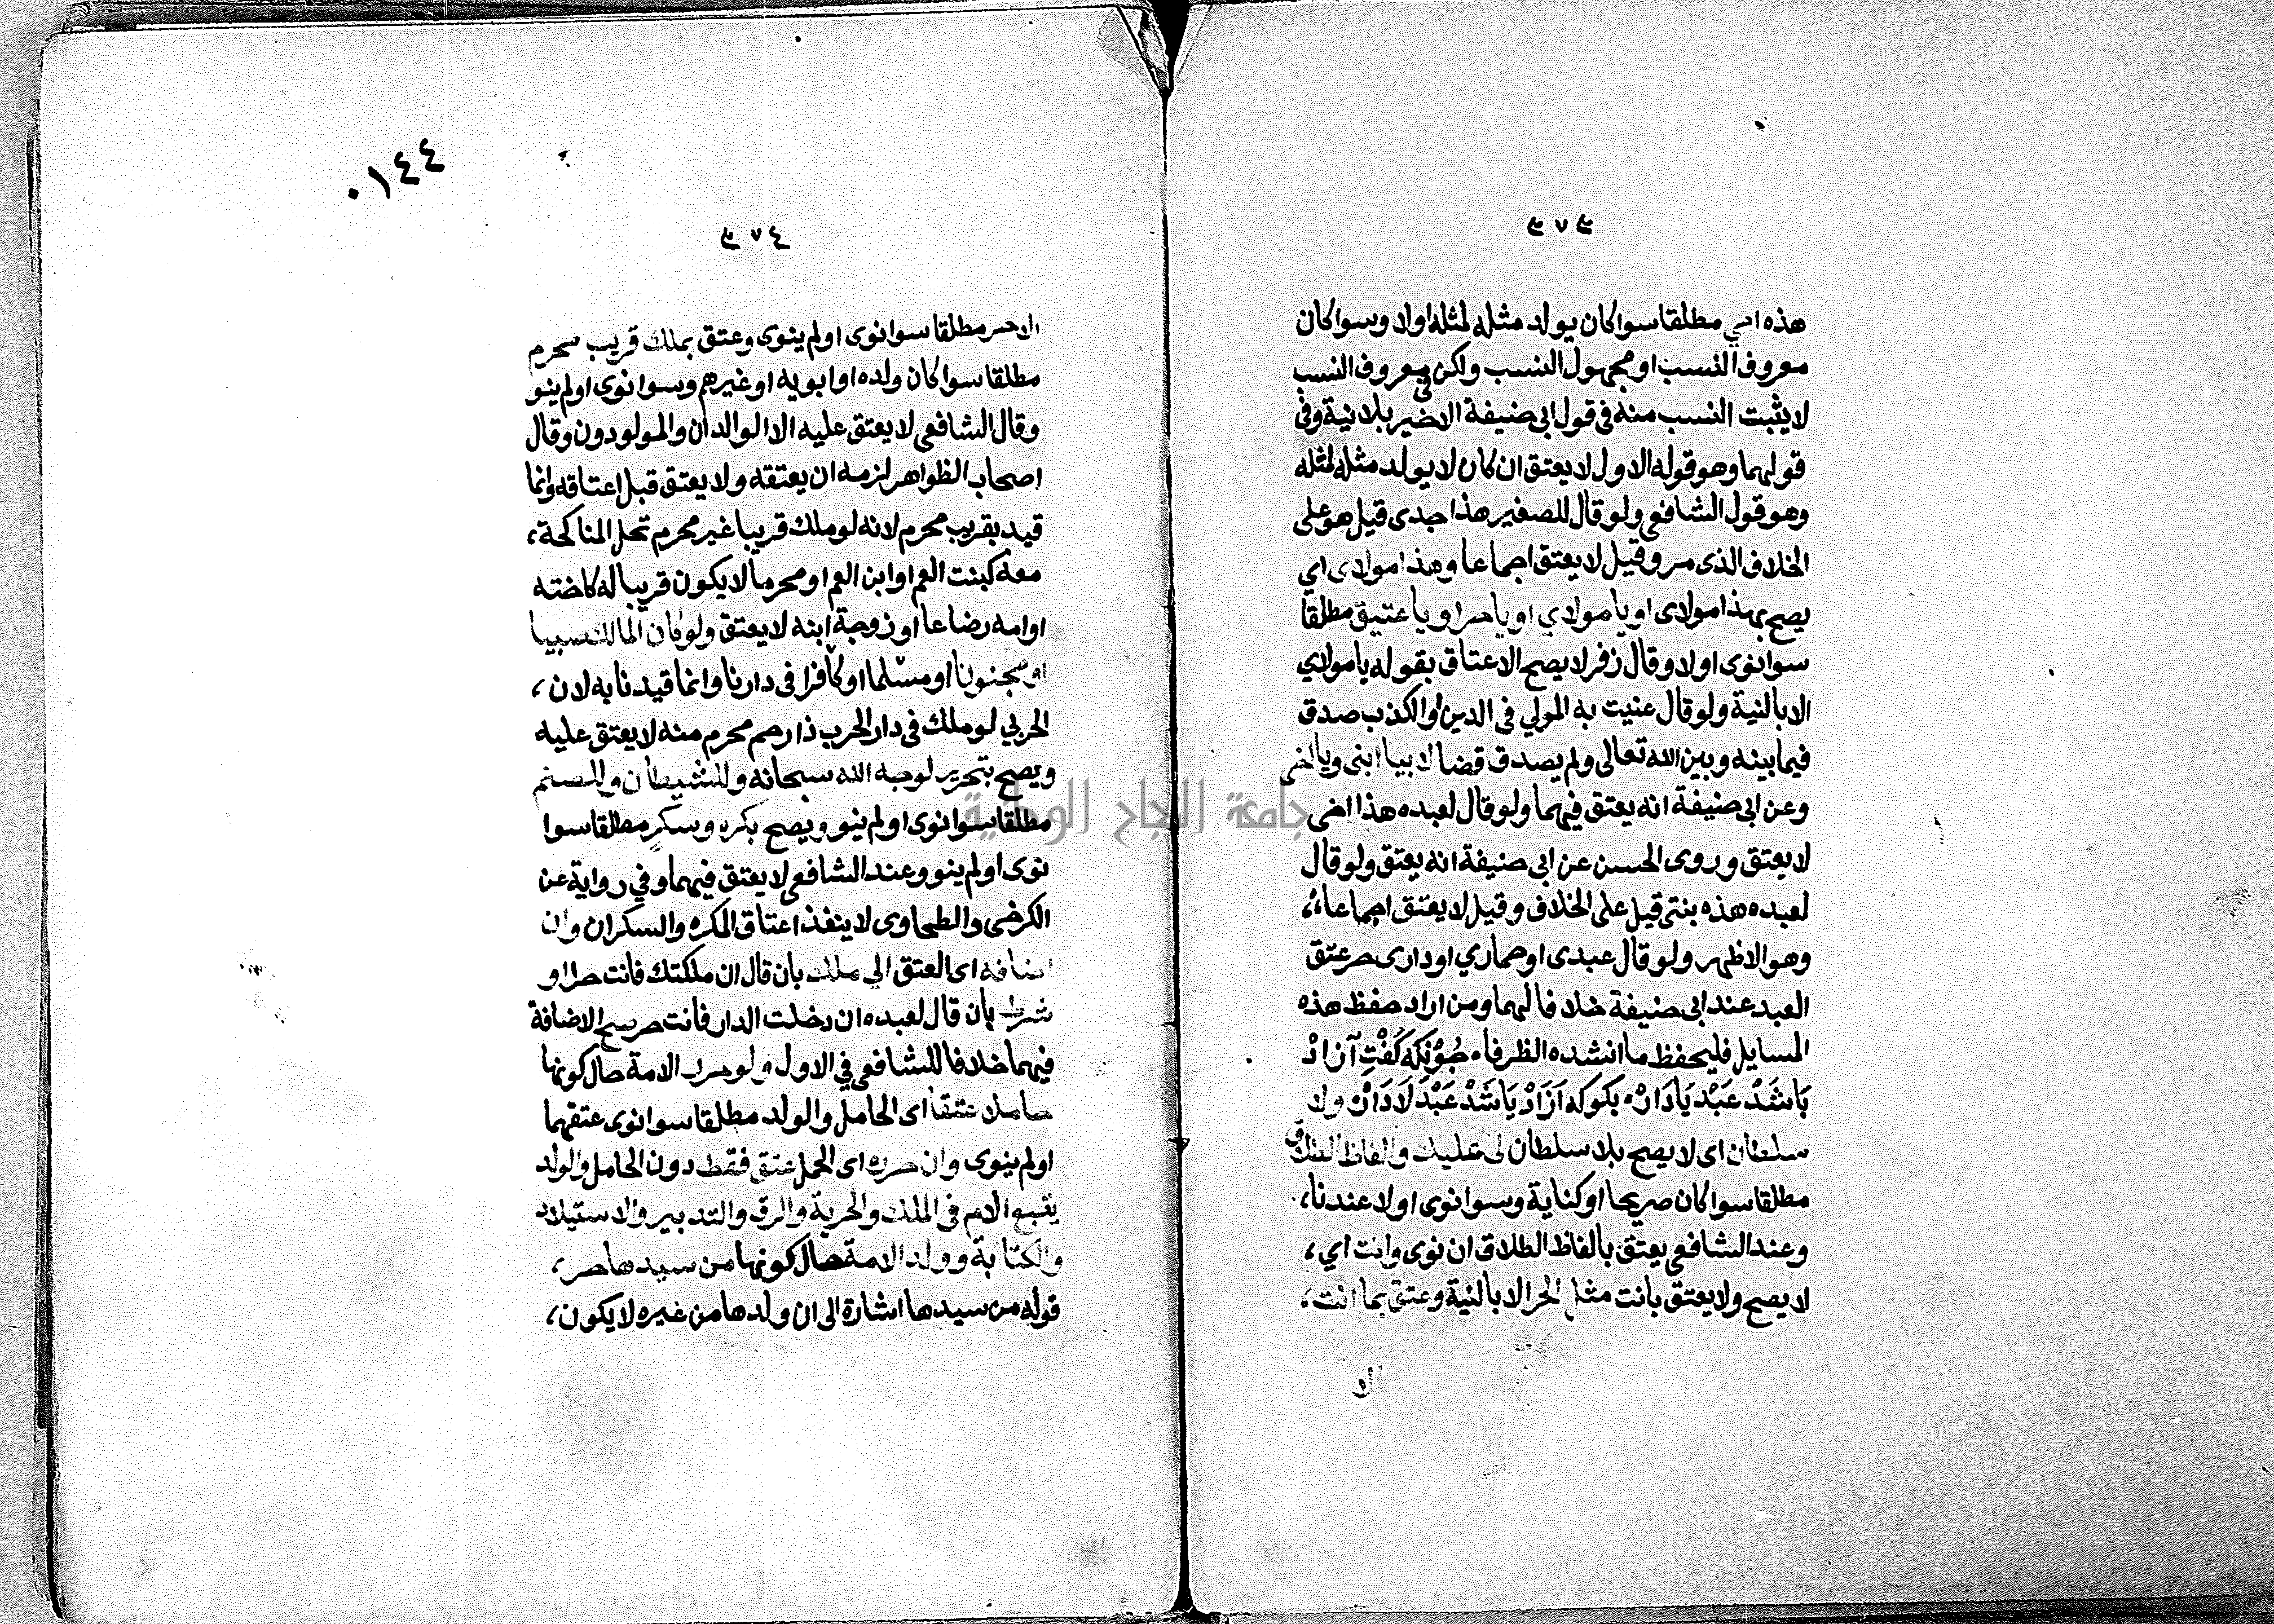 ٣٧٣
هذه امي مطلقا سوا كان يولد مثله لمثله اولا وسوا كان
معروف النسب او مجهول النسب ولكن في معروف النسب
لا يثبت النسب منه في قول ابي حنيفة الاخير بلا نية وفي
قولهما وهو قوله الاول لا يعتق ان كان لا يولد مثله لمثله
وهو قول الشافعي ولو قال للصغير هذا جدي قيل هو على
الخلاف الذى مر وقيل لا يعتق اجماعا وهذا مولاى اي
يصح بهذا مولاى او يا مولاي او يا حر او يا عتيق مطلقا
سوا نوى اولا وقال زفر لا يصح الاعتاق بقوله يا مولاي
الا بالنية ولو قال عنيت به المولي في الدين او الكذب صدق
فيما بينه وبين الله تعالى ولم يصدق قضا لا بيا ابنى ويا اخى
وعن ابى حنيفة انه يعتق فيهما ولو قال لعبده هذا اخى
لا يعتق وروى الحسن عن ابى حنيفة انه يعتق ولو قال
لعبده هذه بنتى قيل على الخلاف وقيل لا يعتق اجماعا،
وهو الاظهر ولو قال عبدى او حماري او دارى حر عتق
العبد عند ابى حنيفة خلافا لهما ومن اراد حفظ هذه
المسايل فليحفظ ما انشده الظرفاء چُوْنكِه كُفْتِ آزادْ
بَاشَدْ عَبْد يَادَارْ بكوكه آزَادْ يَاشَدْ عَبْدَ لَادَارْ ولا
سلطان اى لا يصح بلا سلطان لى عليك والفاظ الطلاق
مطلقا سوا كان صريحا او كناية وسوا نوى اولا عندنا،
وعند الشافعى يعتق بالفاظ الطلاق ان نوى وانت اي،
لا يصح ولا يعتق بانت مثل الحر الا بالنية وعتق بما انت،
الا
٠١٤٤
٣٧٤
الا حر مطلقا سوا نوى او لم ينوى وعتق بملك قريب محرم
مطلقا سوا كان ولده او ابويه او غيرهم وسوا نوى او لم ينو
وقال الشافعى لا يعتق عليه الا الوالدان والمولودون وقال
اصحاب الظواهر لزمه ان يعتقه ولا يعتق قبل اعتاقه وانما
قيد بقريب محرم لانه لو ملك قريبا غير محرم تحل المناكحة،
معه كبنت العم او ابن العم او محرما لا يكون قريبا له كاخته
او امه رضاعا او زوجة ابنه لا يعتق ولو كان المالك صبيا
او مجنونا او مسلما او كافرا فى دارنا وانما قيدنا به لان،
الحربي لو ملك فى دار الحرب ذا رحم محرم منه لا يعتق عليه
ويصح بتحرير لوجه الله سبحانه وللشيطان وللصنم
مطلقا سوا نوى او لم ينو ويصح بكره وسكر مطلقا سوا
نوى او لم ينو وعند الشافعى لا يعتق فيهما وفي رواية عن
الكرخى والطحاوى لا ينفذ اعتاق المكره والسكران وان
اضافه اى العتق الي ملك بان قال ان ملكتك فانت حر او
شرط بان قال لعبده ان دخلت الدار فانت حر صح الاضافة
فيهما خلافا للشافعى في الاول ولو حرر الامة حال كونها
حاملا عتقا اى الحامل والولد مطلقا سوا نوى عتقهما
او لم ينوى وان حرره اى الحمل عتق فقط دون الحامل والولد
يتبع الام فى الملك والحرية والرق والتدبير والاستيلاد
والكتابة وولد الامة حال كونها من سيدها حر،
قوله من سيدها اشارة الى ان ولدها من غيره لا يكون،
جامعة النجاح الوطنية